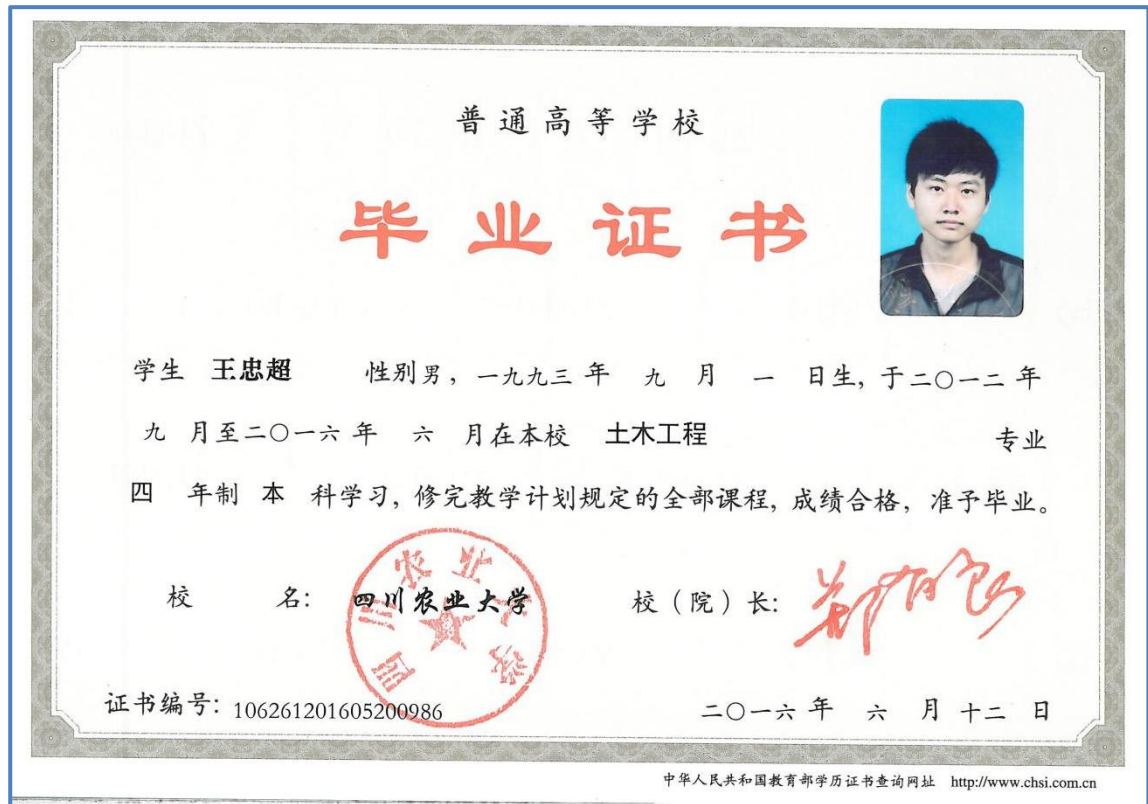 普通高等学校
毕业证书
学生 王忠超 性别男，一九九三年 九 月 一 日生，于二〇一二年
九 月至二〇一六年 六 月在本校 土木工程 专业
四 年制 本 科学习，修完教学计划规定的全部课程，成绩合格，准予毕业。
四川农业大学
校 名： 四川农业大学 校（院）长： 郑有良
证书编号：106261201605200986 二〇一六年 六 月十二 日
中华人民共和国教育部学历证书查询网址 http://www.chsi.com.cn